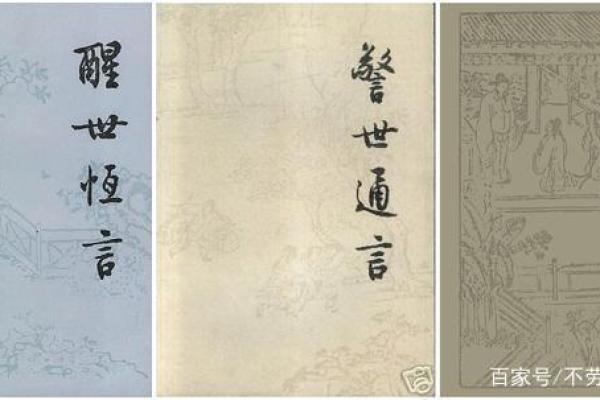 醒世恒言
警世通言
百家号/不劳